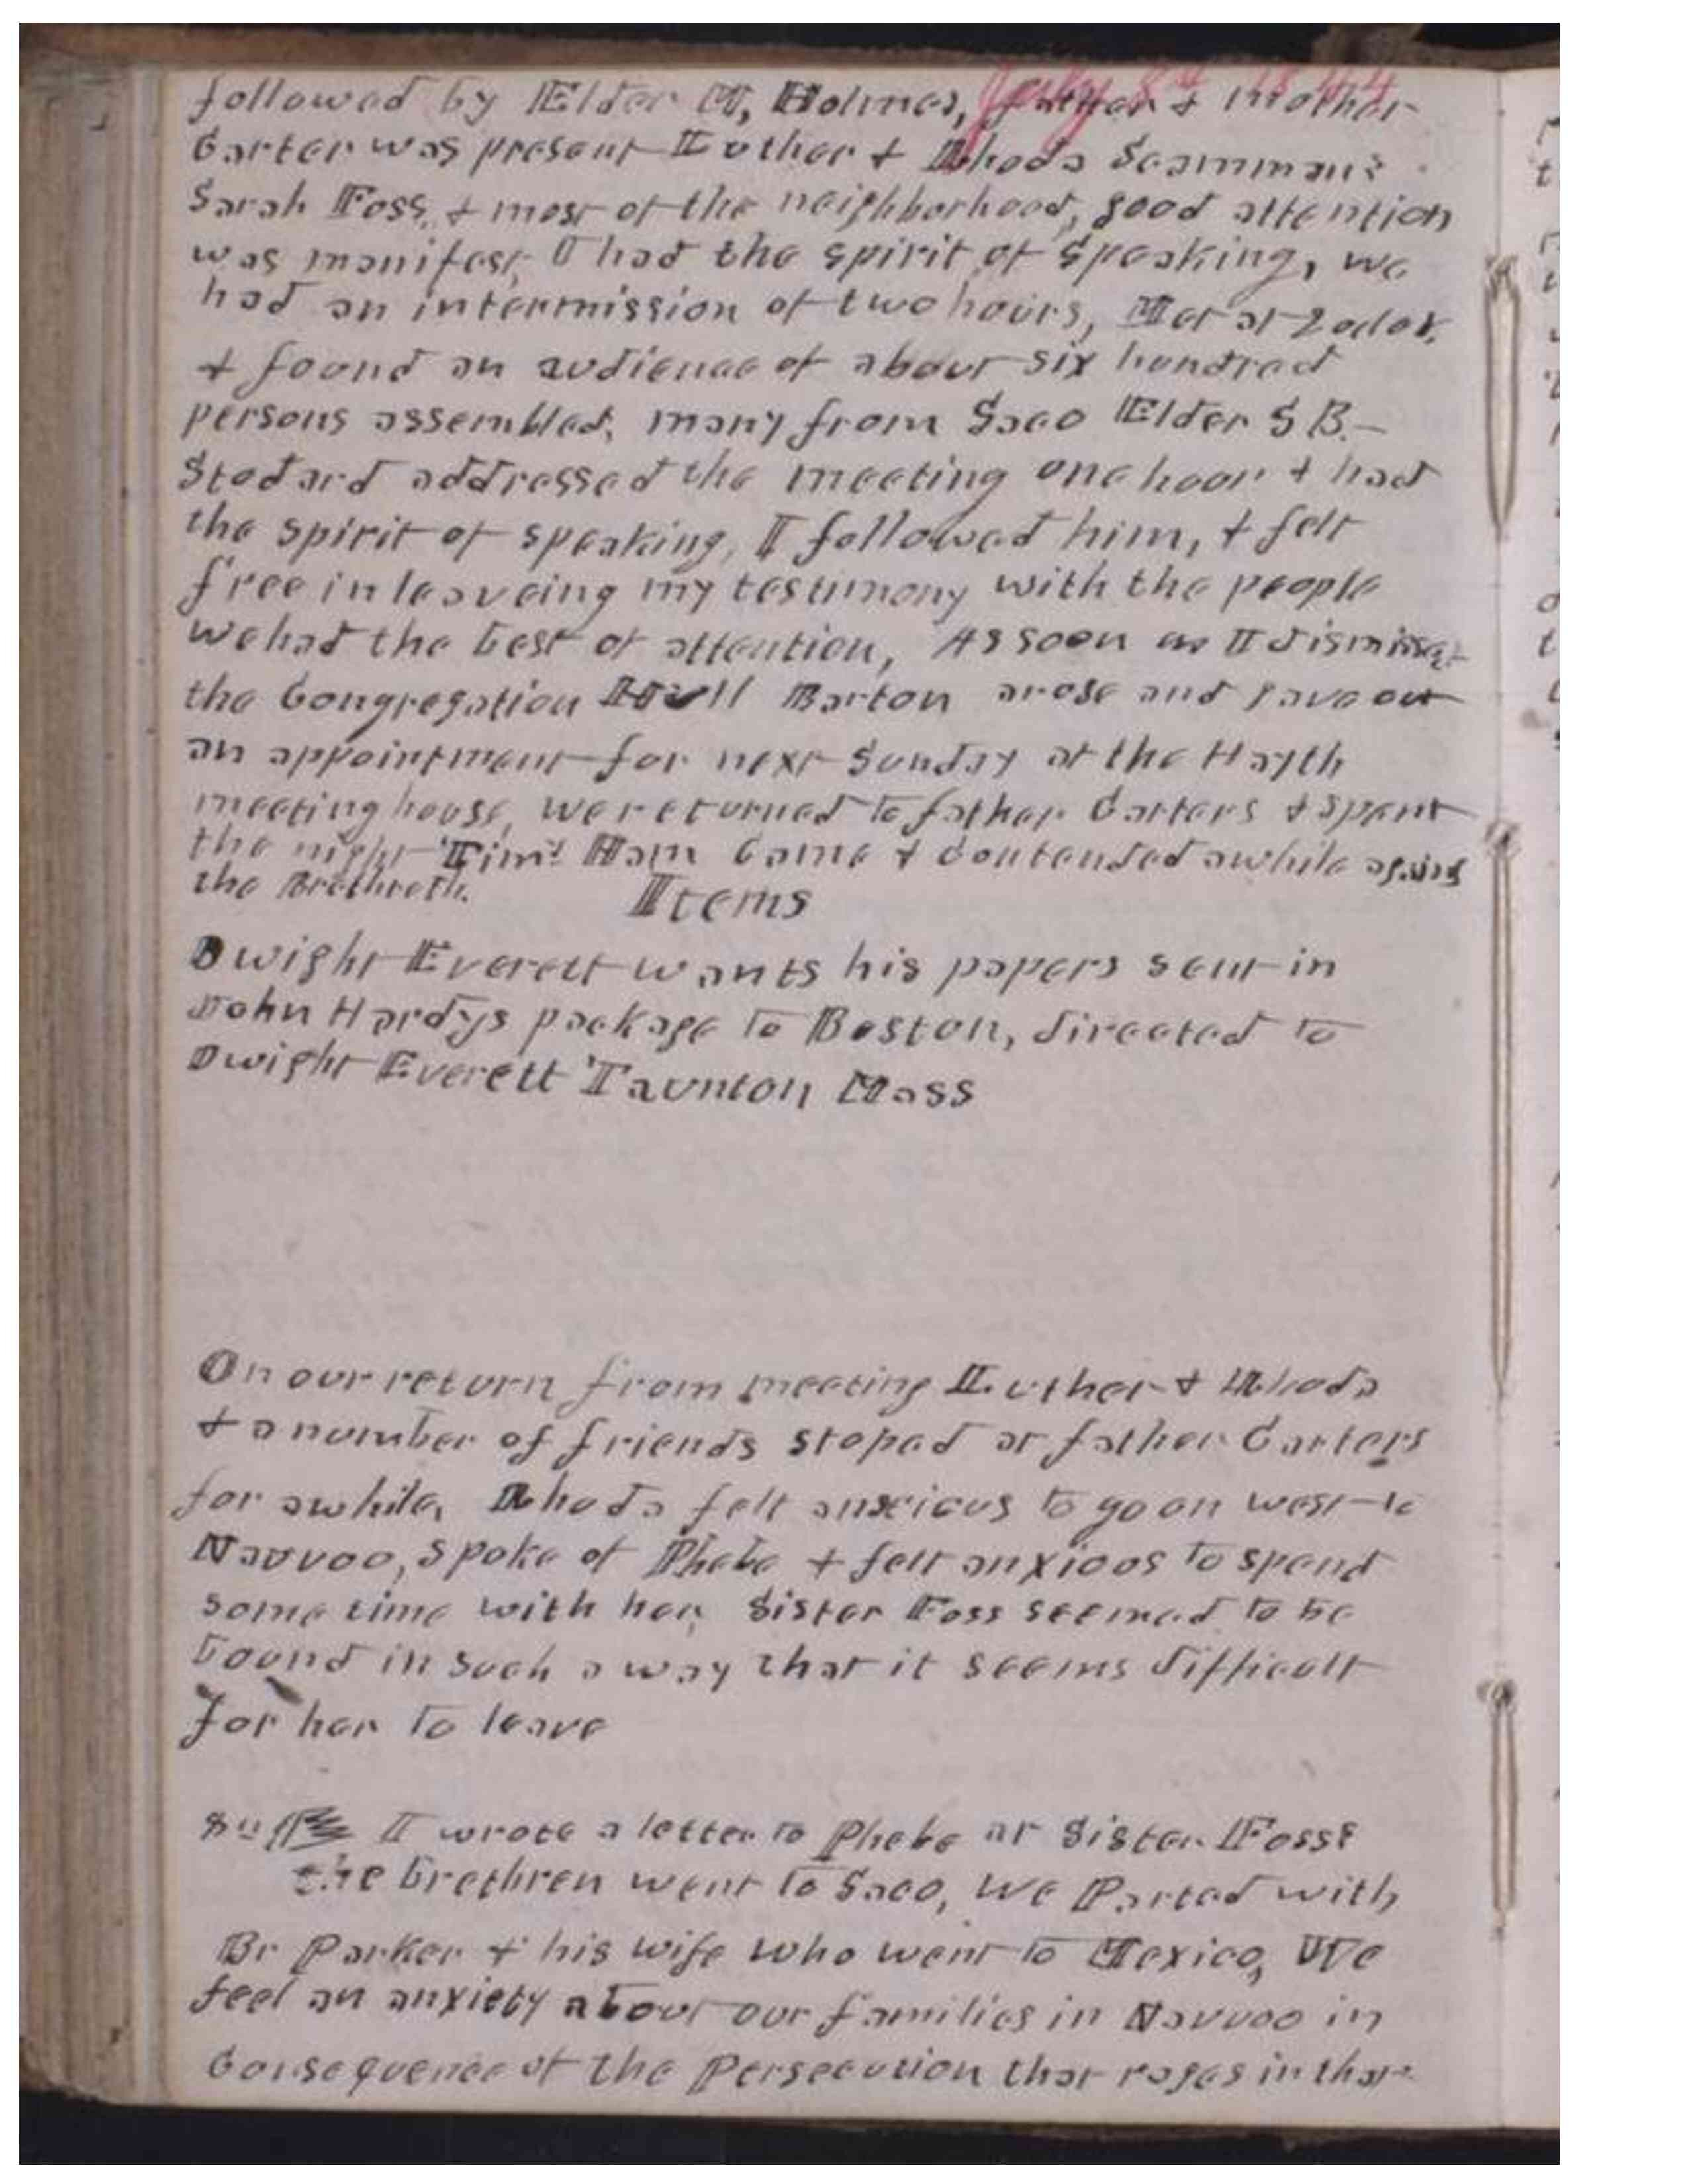 July 8th 1844
followed by Elder M, Holmes, father & mother
Carter was present Luther & Rhoda Scammans
Sarah Foss, & most of the neighborhood, good attention
was manifest, I had the spirit of speaking, we
had an intermission of two hours, Met at 2 oclok,
& found an audience of about six hundred
persons assembled, many from Saco Elder S B.-
Stodard addressed the meeting one hour & had
the spirit of speaking, I followed him, & felt
free in leaveing my testimony with the people
we had the best of attention, As soon as I dismissed
the Congregation Barton arose and gave out
an appointment for next Sunday at the Hayth
meeting house, we returned to father Carters & spent
the night Tim! Ham Came & Contended awhile against
the Brethreth. Items
Dwight Everett wants his papers sent in
John Hardys package to Boston, directed to
Dwight Everett Taunton Mass
On our return from meeting Luther & Rhoda
& a number of friends stoped at father Carters
for awhile, Rhoda felt anxious to go on west to
Nauvoo, spoke of Phebe & felt anxious to spend
some time with her, Sister Foss seemed to be
bound in such a way that it seems difficult
for her to leave
8th I wrote a letter to Phebe at Sister Foss's
the brethren went to Saco, We Parted with
Br Parker & his wife who went to Mexico, We
feel an anxiety about our families in Nauvoo in
Consequence of the Persecution that rages in that